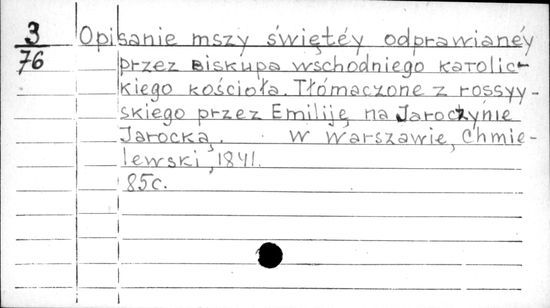 3
76
Opisanie mszy świętéy odprawianéy
przez biskupa wschodniego katolic-
kiego kościoła. Tłómaczone z rossyy-
skiego przez Emiliję na Jaroczynie
Jarocką. W Warszawie, Chmie-
lewski, 1841.
85c.